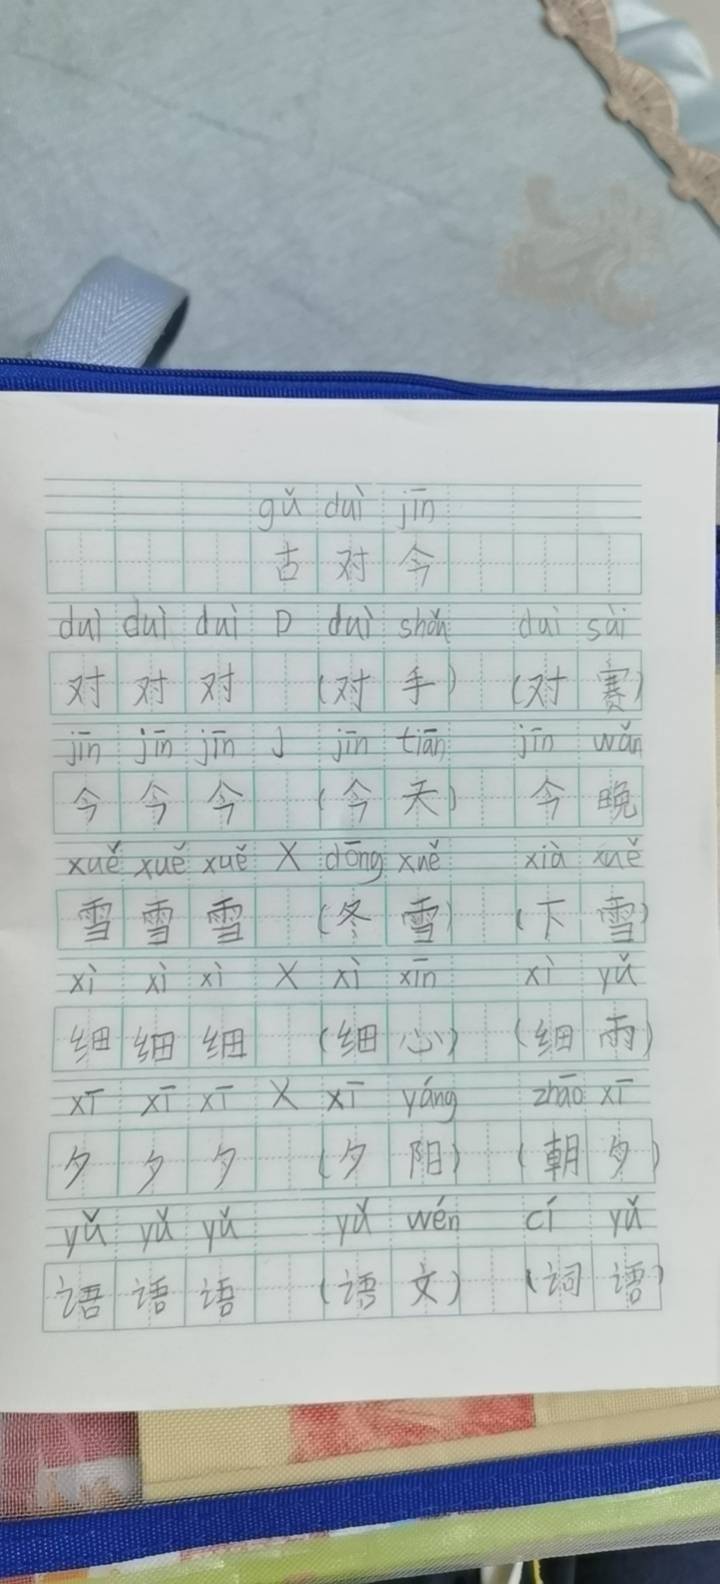 gǔ duì jīn
古 对 今
duì duì duì D duì shǒu duì sài
对 对 对 (对 手) (对 赛)
jīn jīn jīn J jīn tiān jīn wǎn
今 今 今 (今 天) 今 晚
xuě xuě xuě X dōng xuě xià xuě
雪 雪 雪 (冬 雪) (下 雪)
xì xì xì X xì xīn xì yǔ
细 细 细 (细 心) (细 雨)
xī xī xī X xī yáng zhāo xī
夕 夕 夕 (夕 阳) (朝 夕)
yǔ yǔ yǔ yǔ wén cí yǔ
语 语 语 (语 文) (词 语)